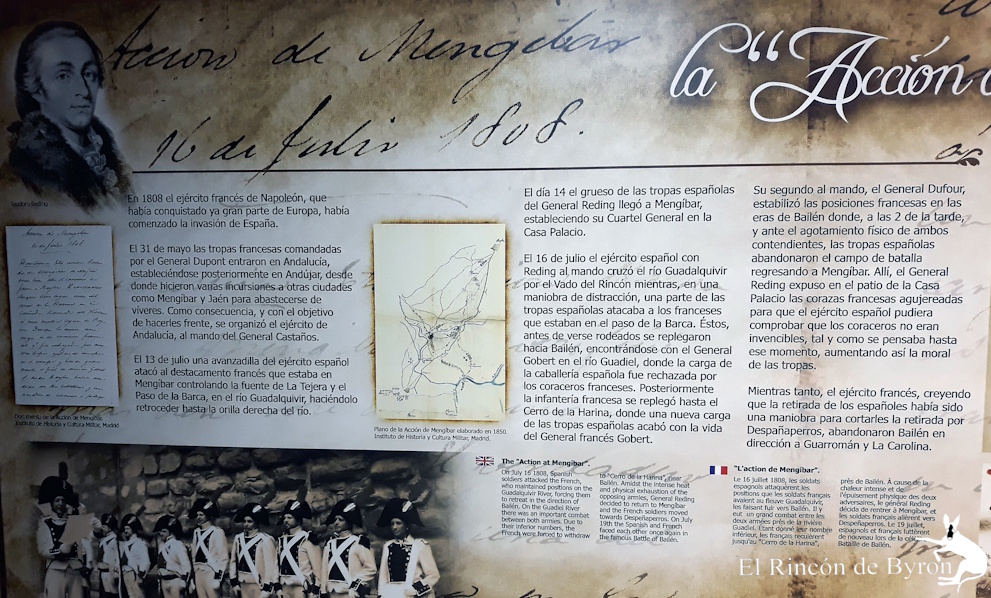 Acción de Mengíbar
16 de Julio 1808.
la “Acción
Teodoro Reding
En 1808 el ejército francés de Napoleón, que
había conquistado ya gran parte de Europa, había
comenzado la invasión de España.
El 31 de mayo las tropas francesas comandadas
por el General Dupont entraron en Andalucía,
estableciéndose posteriormente en Andújar, desde
donde hicieron varias incursiones a otras ciudades
como Mengíbar y Jaén para abastecerse de
víveres. Como consecuencia, y con el objetivo
de hacerles frente, se organizó el ejército de
Andalucía, al mando del General Castaños.
El 13 de julio una avanzadilla del ejército español
atacó al destacamento francés que estaba en
Mengíbar controlando la fuente de La Tejera y el
Paso de la Barca, en el río Guadalquivir, haciéndolo
retroceder hasta la orilla derecha del río.
Instituto de Historia y Cultura Militar, Madrid
Plano de la Acción de Mengíbar elaborado en 1850.
Instituto de Historia y Cultura Militar, Madrid.
El día 14 el grueso de las tropas españolas
del General Reding llegó a Mengíbar,
estableciendo su Cuartel General en la
Casa Palacio.
El 16 de julio el ejército español con
Reding al mando cruzó el río Guadalquivir
por el Vado del Rincón mientras, en una
maniobra de distracción, una parte de las
tropas españolas atacaba a los franceses
que estaban en el paso de la Barca. Éstos,
antes de verse rodeados se replegaron
hacia Bailén, encontrándose con el General
Gobert en el río Guadiel, donde la carga de
la caballería española fue rechazada por
los coraceros franceses. Posteriormente
la infantería francesa se replegó hasta el
Cerro de la Harina, donde una nueva carga
de las tropas españolas acabó con la vida
del General francés Gobert.
Su segundo al mando, el General Dufour,
estabilizó las posiciones francesas en las
eras de Bailén donde, a las 2 de la tarde,
y ante el agotamiento físico de ambos
contendientes, las tropas españolas
abandonaron el campo de batalla
regresando a Mengíbar. Allí, el General
Reding expuso en el patio de la Casa
Palacio las corazas francesas agujereadas
para que el ejército español pudiera
comprobar que los coraceros no eran
invencibles, tal y como se pensaba hasta
ese momento, aumentando así la moral
de las tropas.
Mientras tanto, el ejército francés, creyendo
que la retirada de los españoles había sido
una maniobra para cortarles la retirada por
Despañaperros, abandonaron Bailén en
dirección a Guarromán y La Carolina.
The "Action at Mengibar".
On July 16 1808, Spanish
soldiers attacked the French,
who maintained positions on the
Guadalquivir River, forcing them
to retreat in the direction of
Bailén. On the Guadiel River
there was an important combat
between both armies. Due to
their inferior numbers, the
French were forced to withdraw
to "Cerro de la Harina", near
Bailén. Amidst the intense heat
and physical exhaustion of the
opposing armies, General Reding
decided to return to Mengíbar
and the French soldiers moved
towards Despeñaperros. On July
19th the Spanish and French
faced each other once again in
the famous Battle of Bailén.
"L'action de Mengíbar".
Le 16 juillet 1808, les soldats
espagnols attaquèrent les
positions que les soldats français
avaient au fleuve Guadalquivir,
les faisant fuir vers Bailén. Il y
eut un grand combat entre les
deux armées près de la rivière
Guadiel. Étant donné leur nombre
inférieur, les français reculèrent
jusqu'au "Cerro de la Harina",
près de Bailén. À cause de la
chaleur intense et de
l'épuisement physique des deux
adversaires, le général Reding
décida de rentrer à Mengíbar, et
les soldats français allèrent vers
Despeñaperros. Le 19 juillet,
espagnols et français luttèrent
de nouveau lors de la célèbre
Bataille de Bailén.
El Rincón de Byron